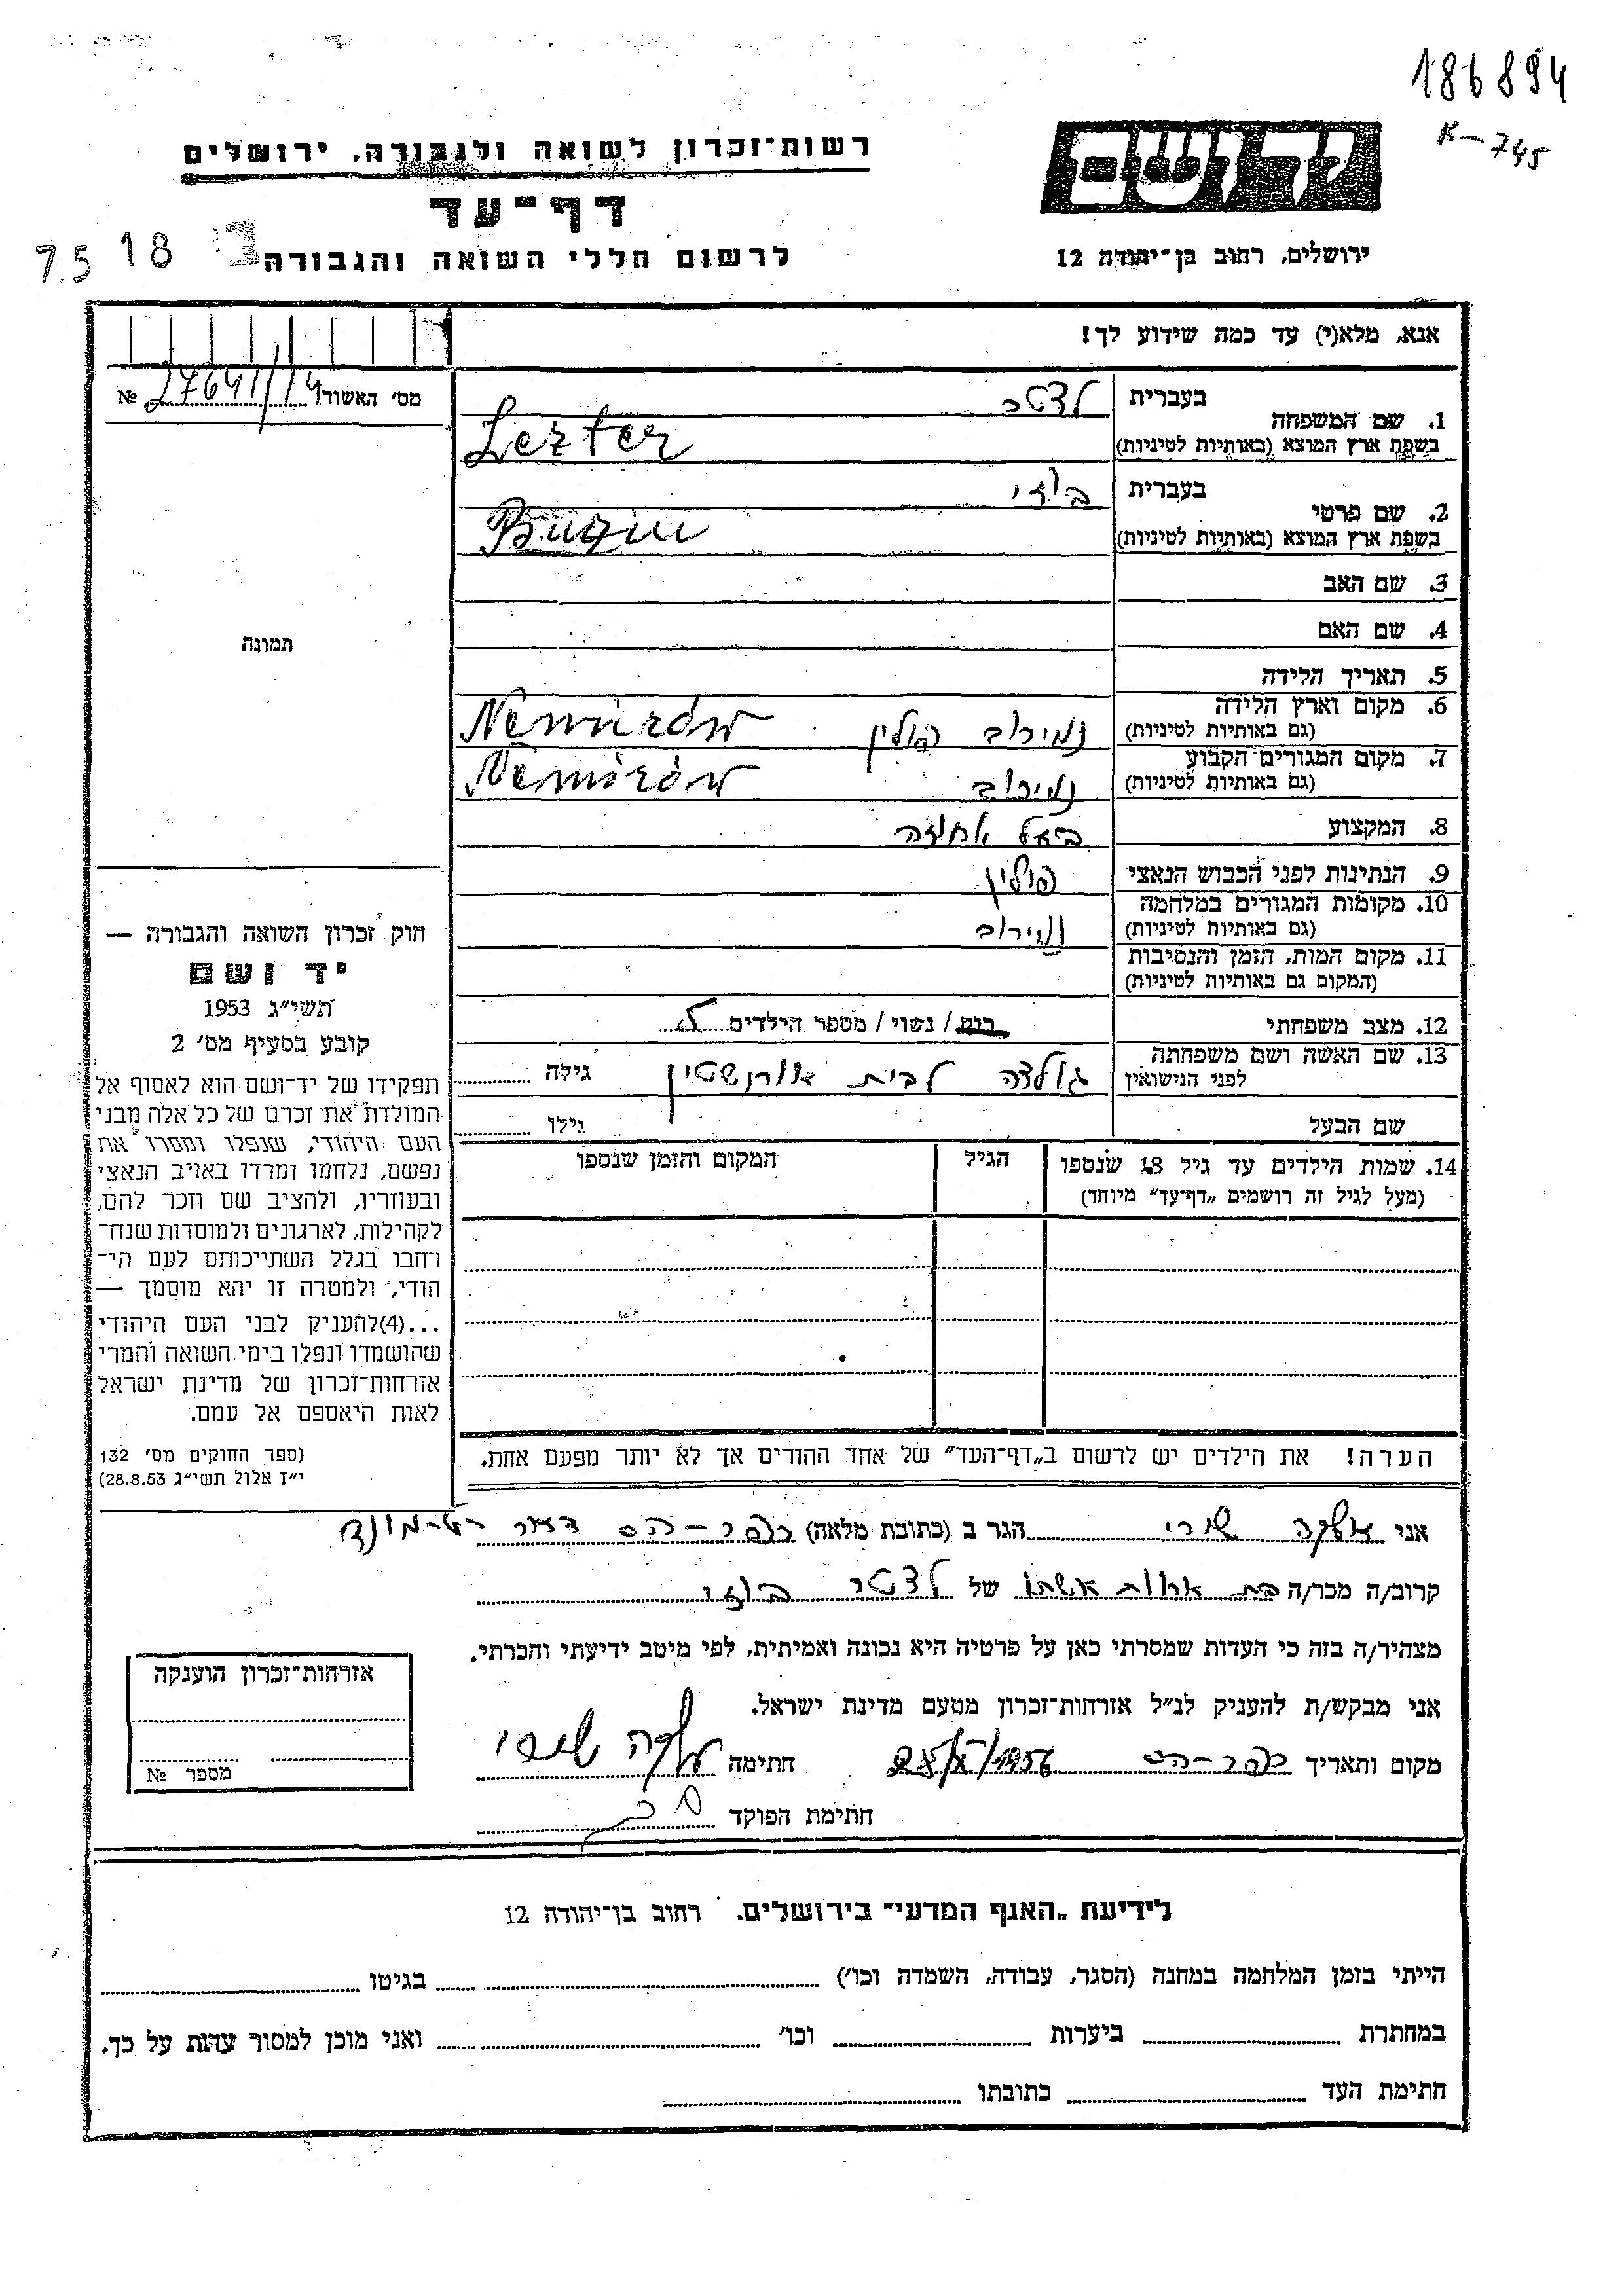 186894
K-745
ידושם
רשות־זכרון לשואה ולגבורה, ירושלים
דף־עד
ירושלים, רחוב בן־יהודה 12
לרשום חללי השואה והגבורה
7.5 18
אנא, מלא(י) עד כמה שידוע לך!
מס׳ האשור 27641/14 №
בעברית לצטר
1. שם המשפחה
בשפת ארץ המוצא (באותיות לטיניות) Lezter
בעברית בוזי
2. שם פרטי
בשפת ארץ המוצא (באותיות לטיניות) Buziu
3. שם האב
4. שם האם
תמונה
5. תאריך הלידה
6. מקום וארץ הלידה
(גם באותיות לטיניות) נמירוב פולין Nemirów
7. מקום המגורים הקבוע
(גם באותיות לטיניות) נמירוב Nemirów
8. המקצוע בעל אחוזה
9. הנתינות לפני הכבוש הנאצי פולין
10. מקומות המגורים במלחמה
(גם באותיות לטיניות) נמירוב
11. מקום המות, הזמן והנסיבות
(המקום גם באותיות לטיניות)
12. מצב משפחתי רוק / נשוי / מספר הילדים
13. שם האשה ושם משפחתה
לפני הנישואין גולדה לבית אורנשטין גילה
שם הבעל גילו
14. שמות הילדים עד גיל 18 שנספו הגיל המקום והזמן שנספו
(מעל לגיל זה רושמים „דף־עד״ מיוחד)
חוק זכרון השואה והגבורה —
יד ושם
תשי״ג 1953
קובע בסעיף מס׳ 2
תפקידו של יד־ושם הוא לאסוף אל
המולדת את זכרם של כל אלה מבני
העם היהודי, שנפלו ומסרו את
נפשם, נלחמו ומרדו באויב הנאצי
ובעוזריו, ולהציב שם וזכר להם,
לקהילות, לארגונים ולמוסדות שנח־
רחבו בגלל השתייכותם לעם הי־
הודי, ולמטרה זו יהא מוסמך —
...(4)להעניק לבני העם היהודי
שהושמדו ונפלו בימי השואה והמרי
אזרחות־זכרון של מדינת ישראל
לאות היאספם אל עמם.
(ספר החוקים מס׳ 132
י״ז אלול תשי״ג 28.8.53)
הערה! את הילדים יש לרשום ב„דף־העד״ של אחד ההורים אך לא יותר מפעם אחת.
אני שורי הגר ב (כתובת מלאה) כפר-הס דאר תל-מונד
קרוב/ה מכר/ה בת אחות אשתו של לצטר בוזי
מצהיר/ה בזה כי העדות שמסרתי כאן על פרטיה היא נכונה ואמיתית, לפי מיטב ידיעתי והכרתי.
אני מבקש/ת להעניק לנ״ל אזרחות־זכרון מטעם מדינת ישראל.
מקום ותאריך כפר-הס 1956 חתימה
חתימת הפוקד
אזרחות־זכרון הוענקה
מספר №
לידיעת „האגף המדעי״ בירושלים. רחוב בן־יהודה 12
הייתי בזמן המלחמה במחנה (הסגר, עבודה, השמדה וכו׳) בגיטו
במחתרת ביערות וכו׳ ואני מוכן למסור עדות על כך.
חתימת העד כתובתו